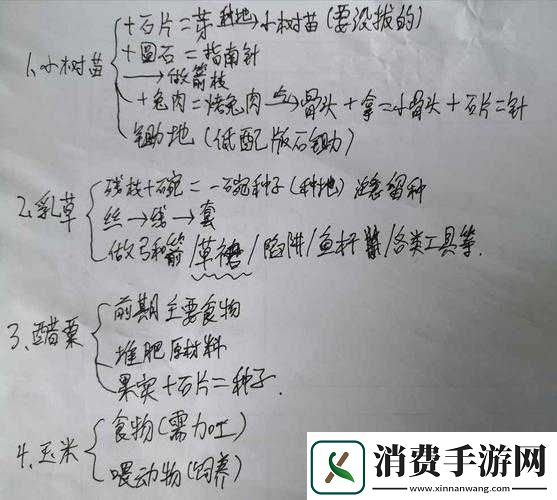 1.小树苗
+石片=芽 种地→小树苗(要没拔的)
+圆石=指南针
→做箭枝
+兔肉=烤兔肉 →骨头+拿=小骨头+石片=针
锄地(低配版石锄)
2.乳草
残枝+碗=一碗种子(种地) 注意留种
丝→线→套
做弓和箭/草裙/陷阱/鱼杆/各类工具等.
3.醋栗
前期主要食物
堆肥原材料
果实+石片=种子.
4.玉米
食物(需加工)
喂动物(饲养)
消费手游网
www.xinnanwang.com